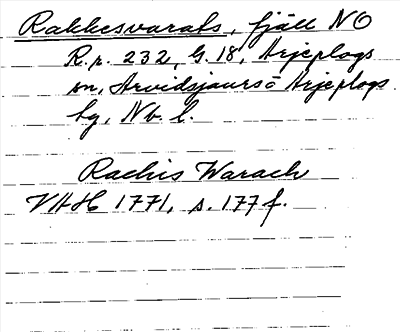 Rakkesvarats, fjäll NO
R.r. 232, G. 18, Arjeplogs
sn, Arvidsjaurs o Arjeplogs
lg, Nb. l.
Rachis Warach
VHH 1771, s. 177 f.